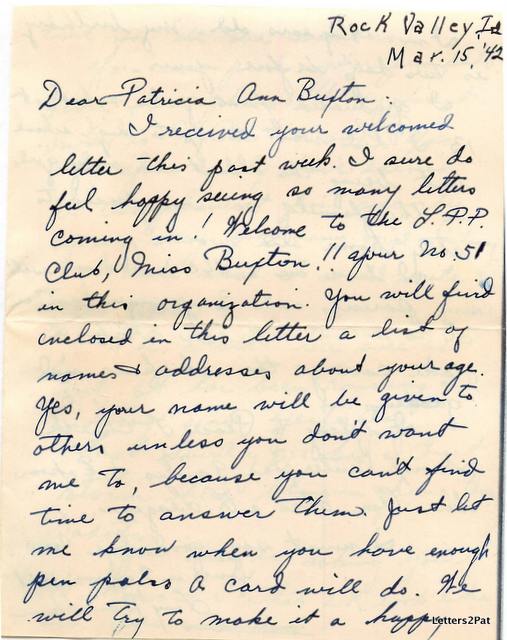 Rock Valley, Ia
Mar. 15, '42
Dear Patricia Ann Buxton:
I received your welcomed
letter this past week. I sure do
feel happy seeing so many letters
coming in! Welcome to the L.P.P.
Club, Miss Buxton!! your No. 51
in this organization. You will find
inclosed in this letter a list of
names & addresses about your age.
Yes, your name will be given to
others unless you don't want
me to, because you can't find
time to answer them. Just let
me know when you have enough
pen pals. A card will do. We
will try to make it a happy
Letters2Pat